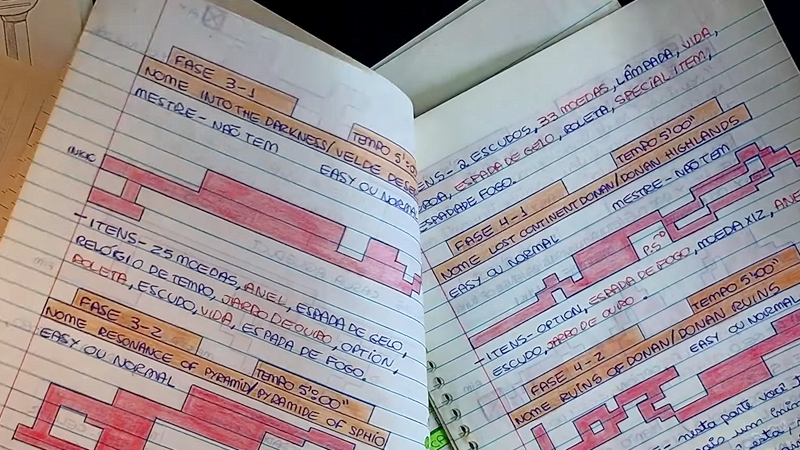 FASE 3-1
NOME INTO THE DARKNESS/VELDE DE GE
TEMPO 5'00"
MESTRE - NÃO TEM
EASY OU NORMAL
INÍCIO
- ITENS - 25 MOEDAS, ANEL, ESPADA DE GELO,
RELÓGIO DE TEMPO, JARRO DE OURO, OPTION,
ROLETA, ESCUDO, VIDA, ESPADA DE FOGO.
FASE 3-2
NOME RESONANCE OF PYRAMID/PYRAMIDE OF SPHIO
TEMPO 5'00"
EASY OU NORMAL
ENS - 2 ESCUDOS, 33 MOEDAS, LÂMPADA, VIDA,
ROA, ESPADA DE GELO, ROLETA, SPECIAL ITEM,
ESPADA DE FOGO.
TEMPO 5'00"
FASE 4-1
NOME LOST CONTINENT DONAN/DONAN HIGHLANDS
EASY OU NORMAL
MESTRE - NÃO TEM
- ITENS - OPTION, ESPADA DE FOGO, MOEDA X12, ANE
ESCUDO, JARRO DE OURO.
TEMPO 5'00"
FASE 4-2
NOME RUINS OF DONAN/DONAN RUINS
EASY OU NORMAL
- nesta parte você